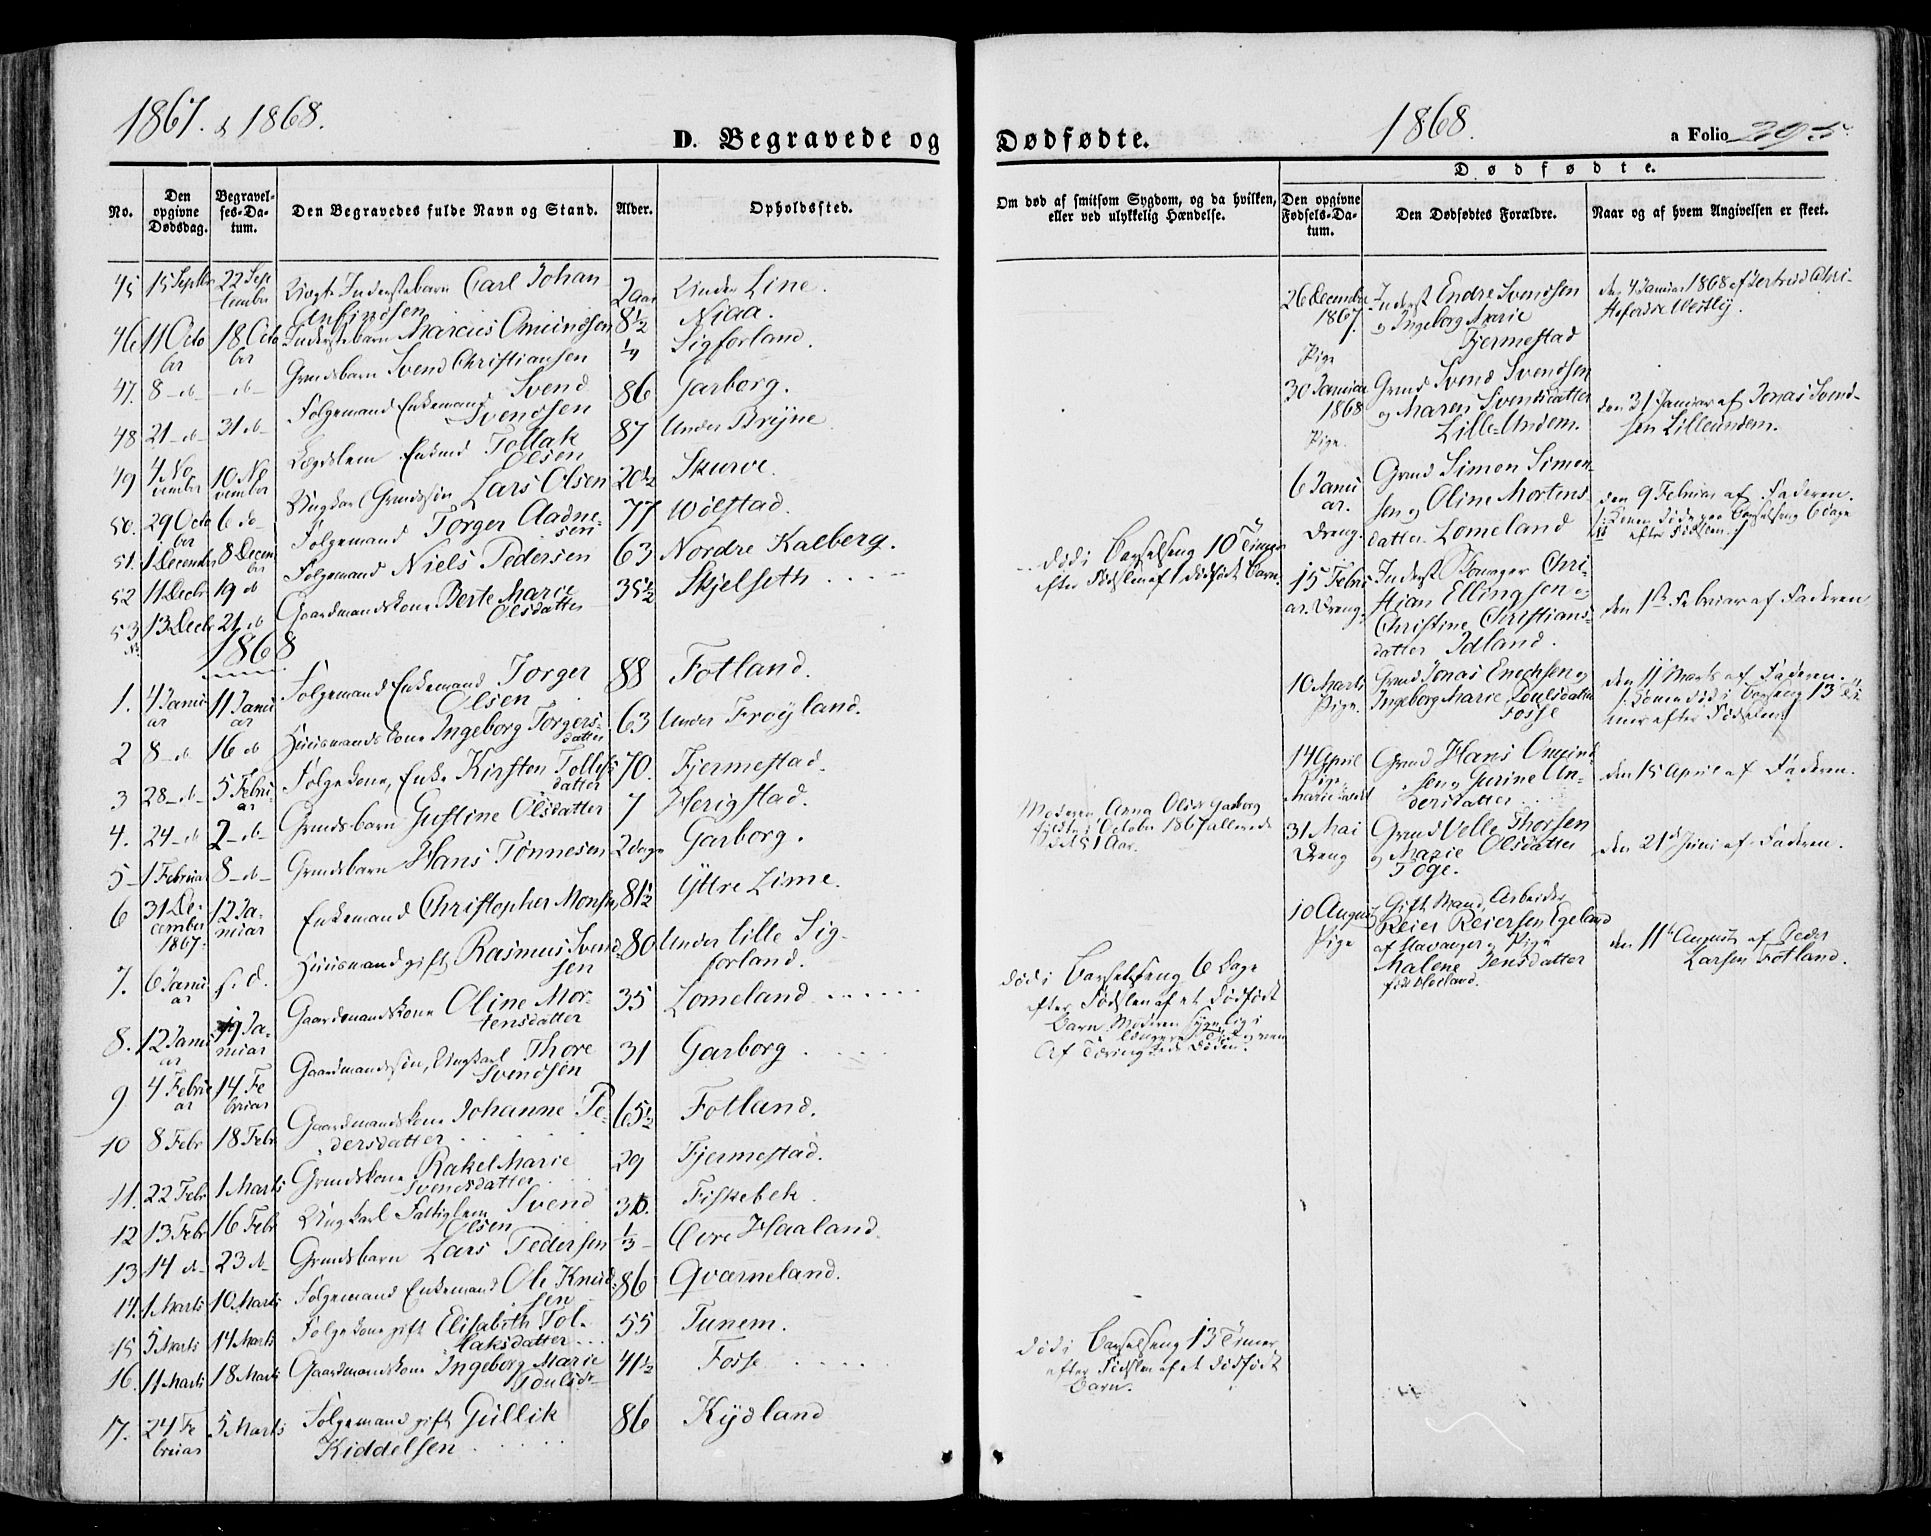 1867. & 1868.
D. Begravede og
No.
Den opgivne Dødsdag.
Begravelses-Datum.
Den Begravedes fulde Navn og Stand.
Alder.
Opholdssted.
45 15 Septbr 22 September Uægte Inderstebarn Carl Johan 2 Aar Under Line.
46 11 October 18 October Inderstebarn Marcus Omundsen 8½ Niaa.
47. 8 - do - - do - Grmdsbarn Svend Christiansen ¼ Sigforland.
48 21 - do 31 do Følgemand Enkemand Svend Svendsen 86 Garborg.
49 4. November 10 November Lægdslem Enkmd Tollak Olsen 87 Under Bryne.
50. 29 October 6 do Ungkarl Grmdssøn Lars Olsen 20½ Skurve.
51. 1 December 8 December Følgemand Torger Aadnesen 77 Wølstad.
52 11 Decbr 19 do Følgemand Niels Pedersen 63 Nordre Kalberg.
53 13 Decbr 21 do Gaardmandskone Berte Marie Olsdatter 35½ Skjelseth
1868
1. 4 Januar 11 Januar Følgemand Enkemand Torger Olsen 88 Fotland.
2 8 - do 16 do Huusmandskone Ingeborg Torgersdatter 63 Under Frøyland.
3 28 - do - 5 Februar Følgekone, Enke Kirsten Tollefsdatter 70. Fjermestad.
4. 24 - do 2 - do - Grmdsbarn Gustine Olsdatter 7 Herigstad.
5 - 1 Februar 8 - do - Grmdsbarn Hans Tønnesen 2 dage Garborg.
6 31 December 1867. 12 Januar Enkemand Christopher Monsen 81½ Yttre Lime.
7. 6 Januar s. d. Huusmand gift Rasmus Svendsen 80 Under Lille Sigforland.
8. 12 Januar 19 Januar Gaardmandskone Oline Mortensdatter 35 Lomeland
9 4 Februar 14 Februar Gaardmandssøn, Ungkarl Thore Svendsen 31 Garborg
10 8 Febr 18 Febr Gaardmandskone Johanne Pedersdatter 65½ Fotland.
11. 22 Febr 1 Marts Grmdskone Rakel Marie Svendsdatter 29 Fjermestad.
12 13 Febr 16 Febr Ungkarl Fattiglem Svend Olsen Fiskebek.
13 14 do 23 do Grmdsbarn Lars Pedersen ⅓ Øvre Haaland.
14. 1 Marts 10 Marts Følgemand Enkemand Ole Knudsen 86 Qvarneland.
15 5 Marts 14 Marts Følgekone gift Elisabeth Tollaksdatter 55 Tunem.
16. 11 Marts 18 Marts Gaardmandskone Ingeborg Marie Poulsdr 41½ Fosse
17. 24 Februar 5 Marts Følgemand gift Gullik Kiddelsen 86 Kydland
Dødfødte.
1868.
a Folio 295
Dødfødte.
Om død af smitsom Sygdom, og da hvilken, eller ved ulykkelig Hændelse.
Den opgivne Fødsels-Datum.
Den Dødfødtes Forældre.
Naar og af hvem Angivelsen er skeet.
død i Barselseng 10 Timer
efter Fødslen af 1 dødfødt Barn.
Moderen, Anna Olsd Garborg
fyldte i October 1867 allerede
sit 51 Aar.
død i Barselseng 6 Dage
efter Fødslen af et dødfødt
Barn. Moderen sygelig i
længere Tid
Af Tæring
død i Barselseng 13 Timer
efter Fødslen af et dødfødt
Barn.
26 December 1867. Pige
Inderst Endre Svendsen
og Ingeborg Marie
Fjermestad
den 4 Januar 1868 af
Westly.
30 Januar 1868 Pige.
Grmd Svend Svendsen
og Maren Svendsdatter
Lille-Undem.
den 31 Januar af Jonas Svend-
sen Lilleundem.
6 Januar. Dreng.
Grmd Simon Simon-
sen og Oline Mortens
datter Lomeland
den 9 Februar af Faderen.
/: Konen døde paa Barselseng 6 dage
efter Fødslen. :/
15 Februar. Dreng.
Inderst Chri-
stian Ellingsen og
Christine Christians-
datter Idland.
den 1ste Februar af Faderen
10 Marts Pige.
Grmd Jonas Enochsen og
Ingeborg Marie Poulsdatter
Fosse
den 11 Marts af Faderen.
/: Konen død i Barselseng 13 Ti-
mer efter Fødslen :/
14 April Pige
Grmd Hans Omund-
sen og Gurine An-
dersdatter
den 15 April af Faderen.
31 Mai Dreng
Grmd Velle Thorsen
og Marie Olsdatter
Toge.
den 21de Juni af Faderen.
10 August Pige
Gift Mand, Arbeider
Reier Reiersen Egeland
af Stavanger og Pige
Malene Jensdatter
den 11te August af Peder
Larsen Fotland.